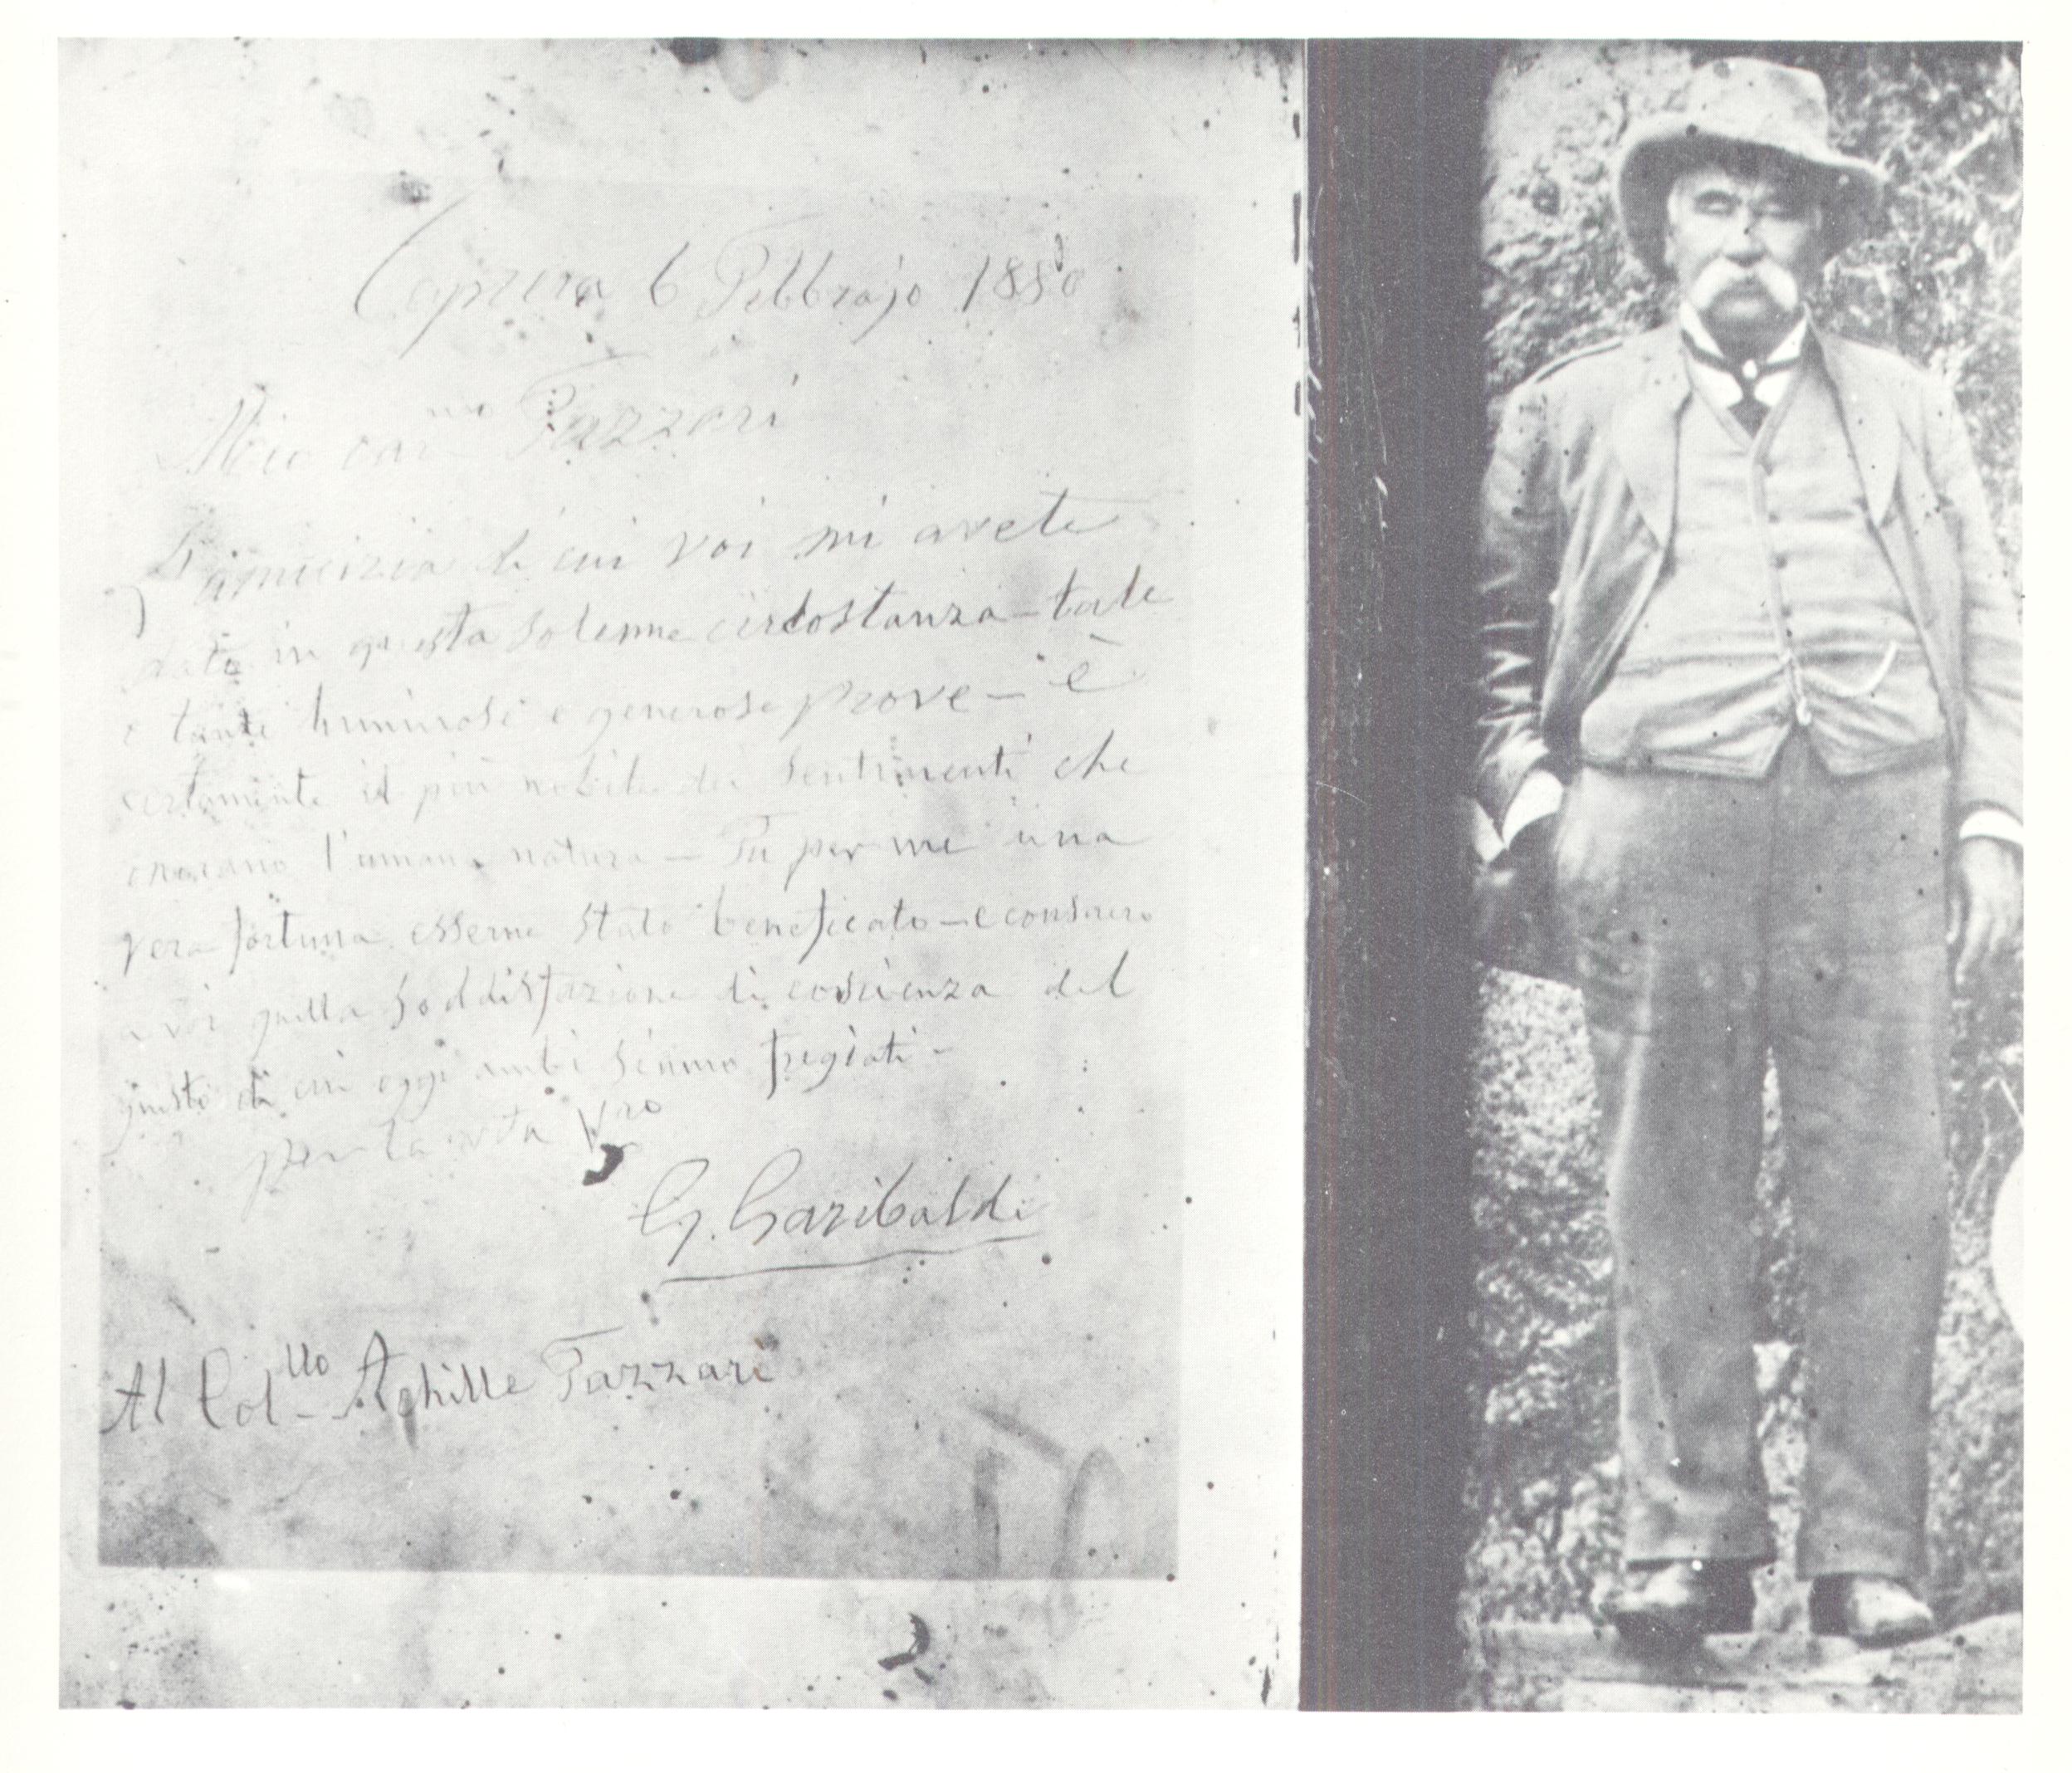 Caprera 6 Febbrajo 1880
Mio car^mo Fazzari
L'amicizia di cui voi mi avete
dato in questa solenne circostanza – tale
e tante luminose e generose prove – è
certamente il più nobile dei sentimenti che
onorano l'umana natura – Fu per me una
vera fortuna esserne stato beneficato – e consacro
a voi quella soddisfazione di coscienza del
giusto di cui oggi ambi siamo fregiati –
per la vita V^ro
G. Garibaldi
Al Col^llo – Achille Fazzari